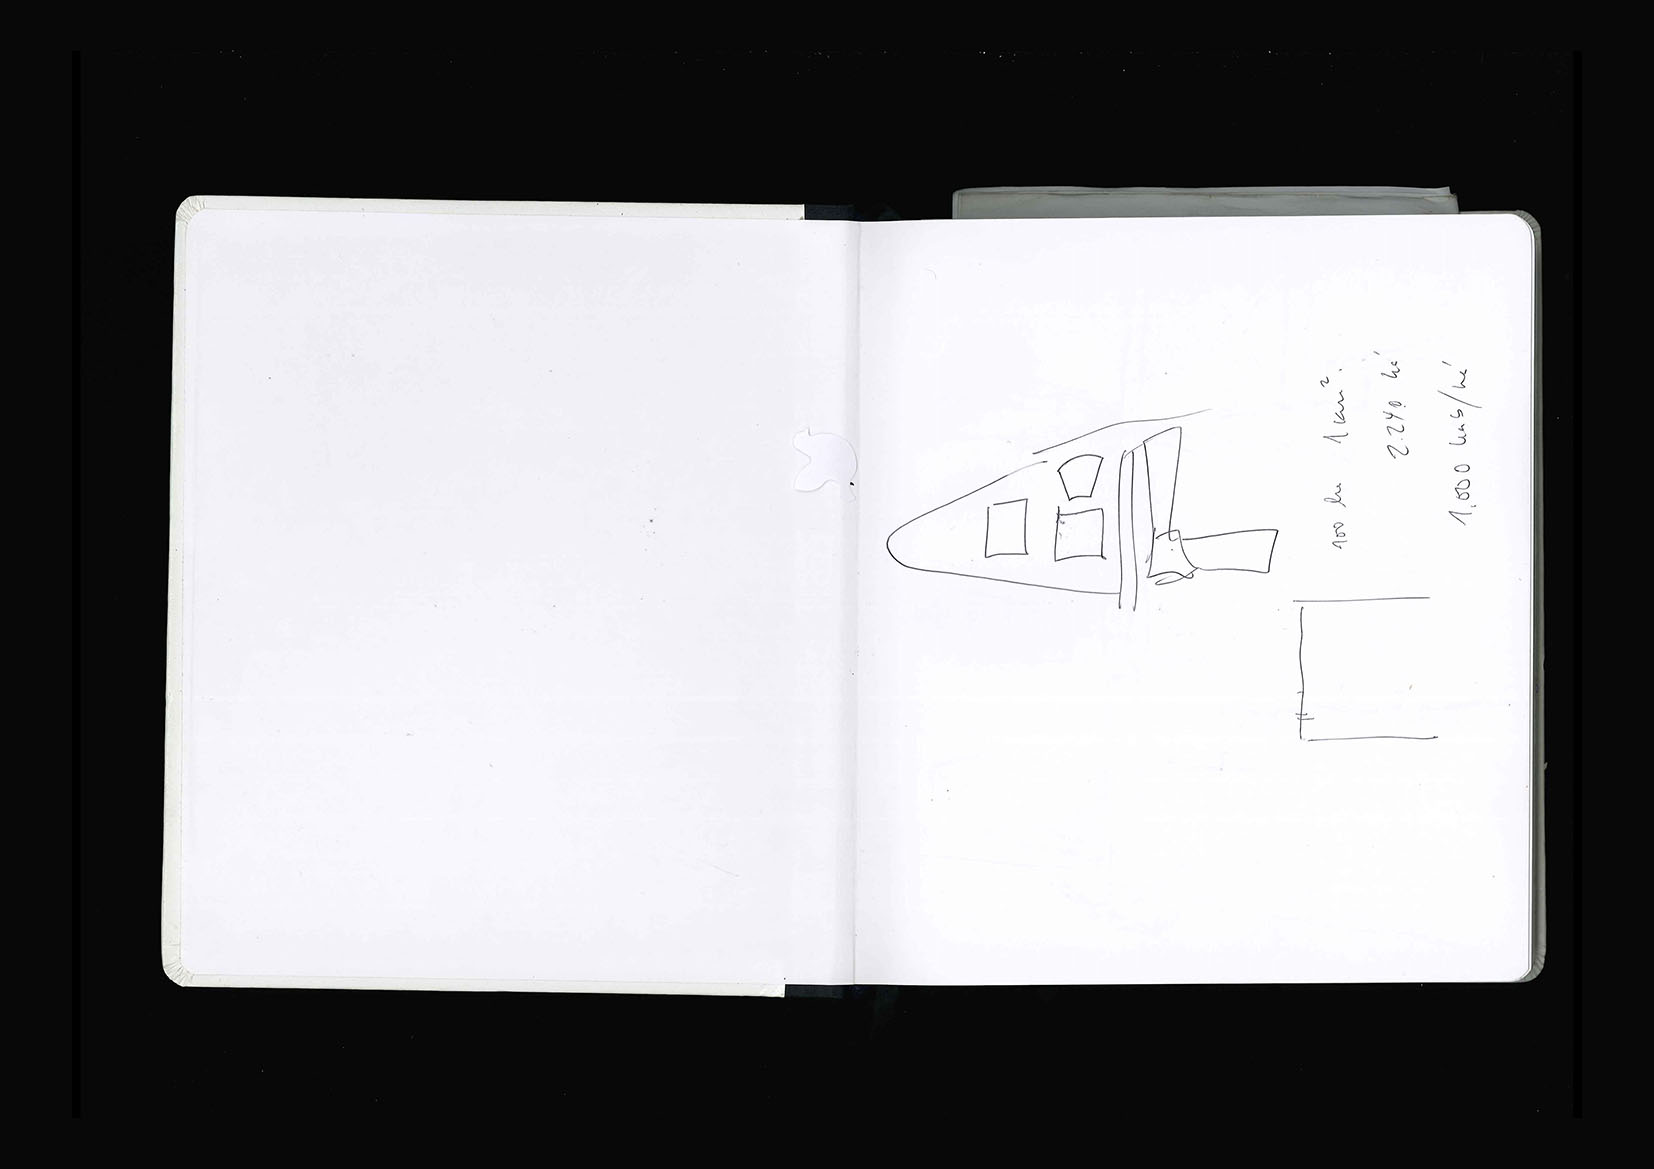 100 ha 1 km².
2.240 há
1.000 hab/há